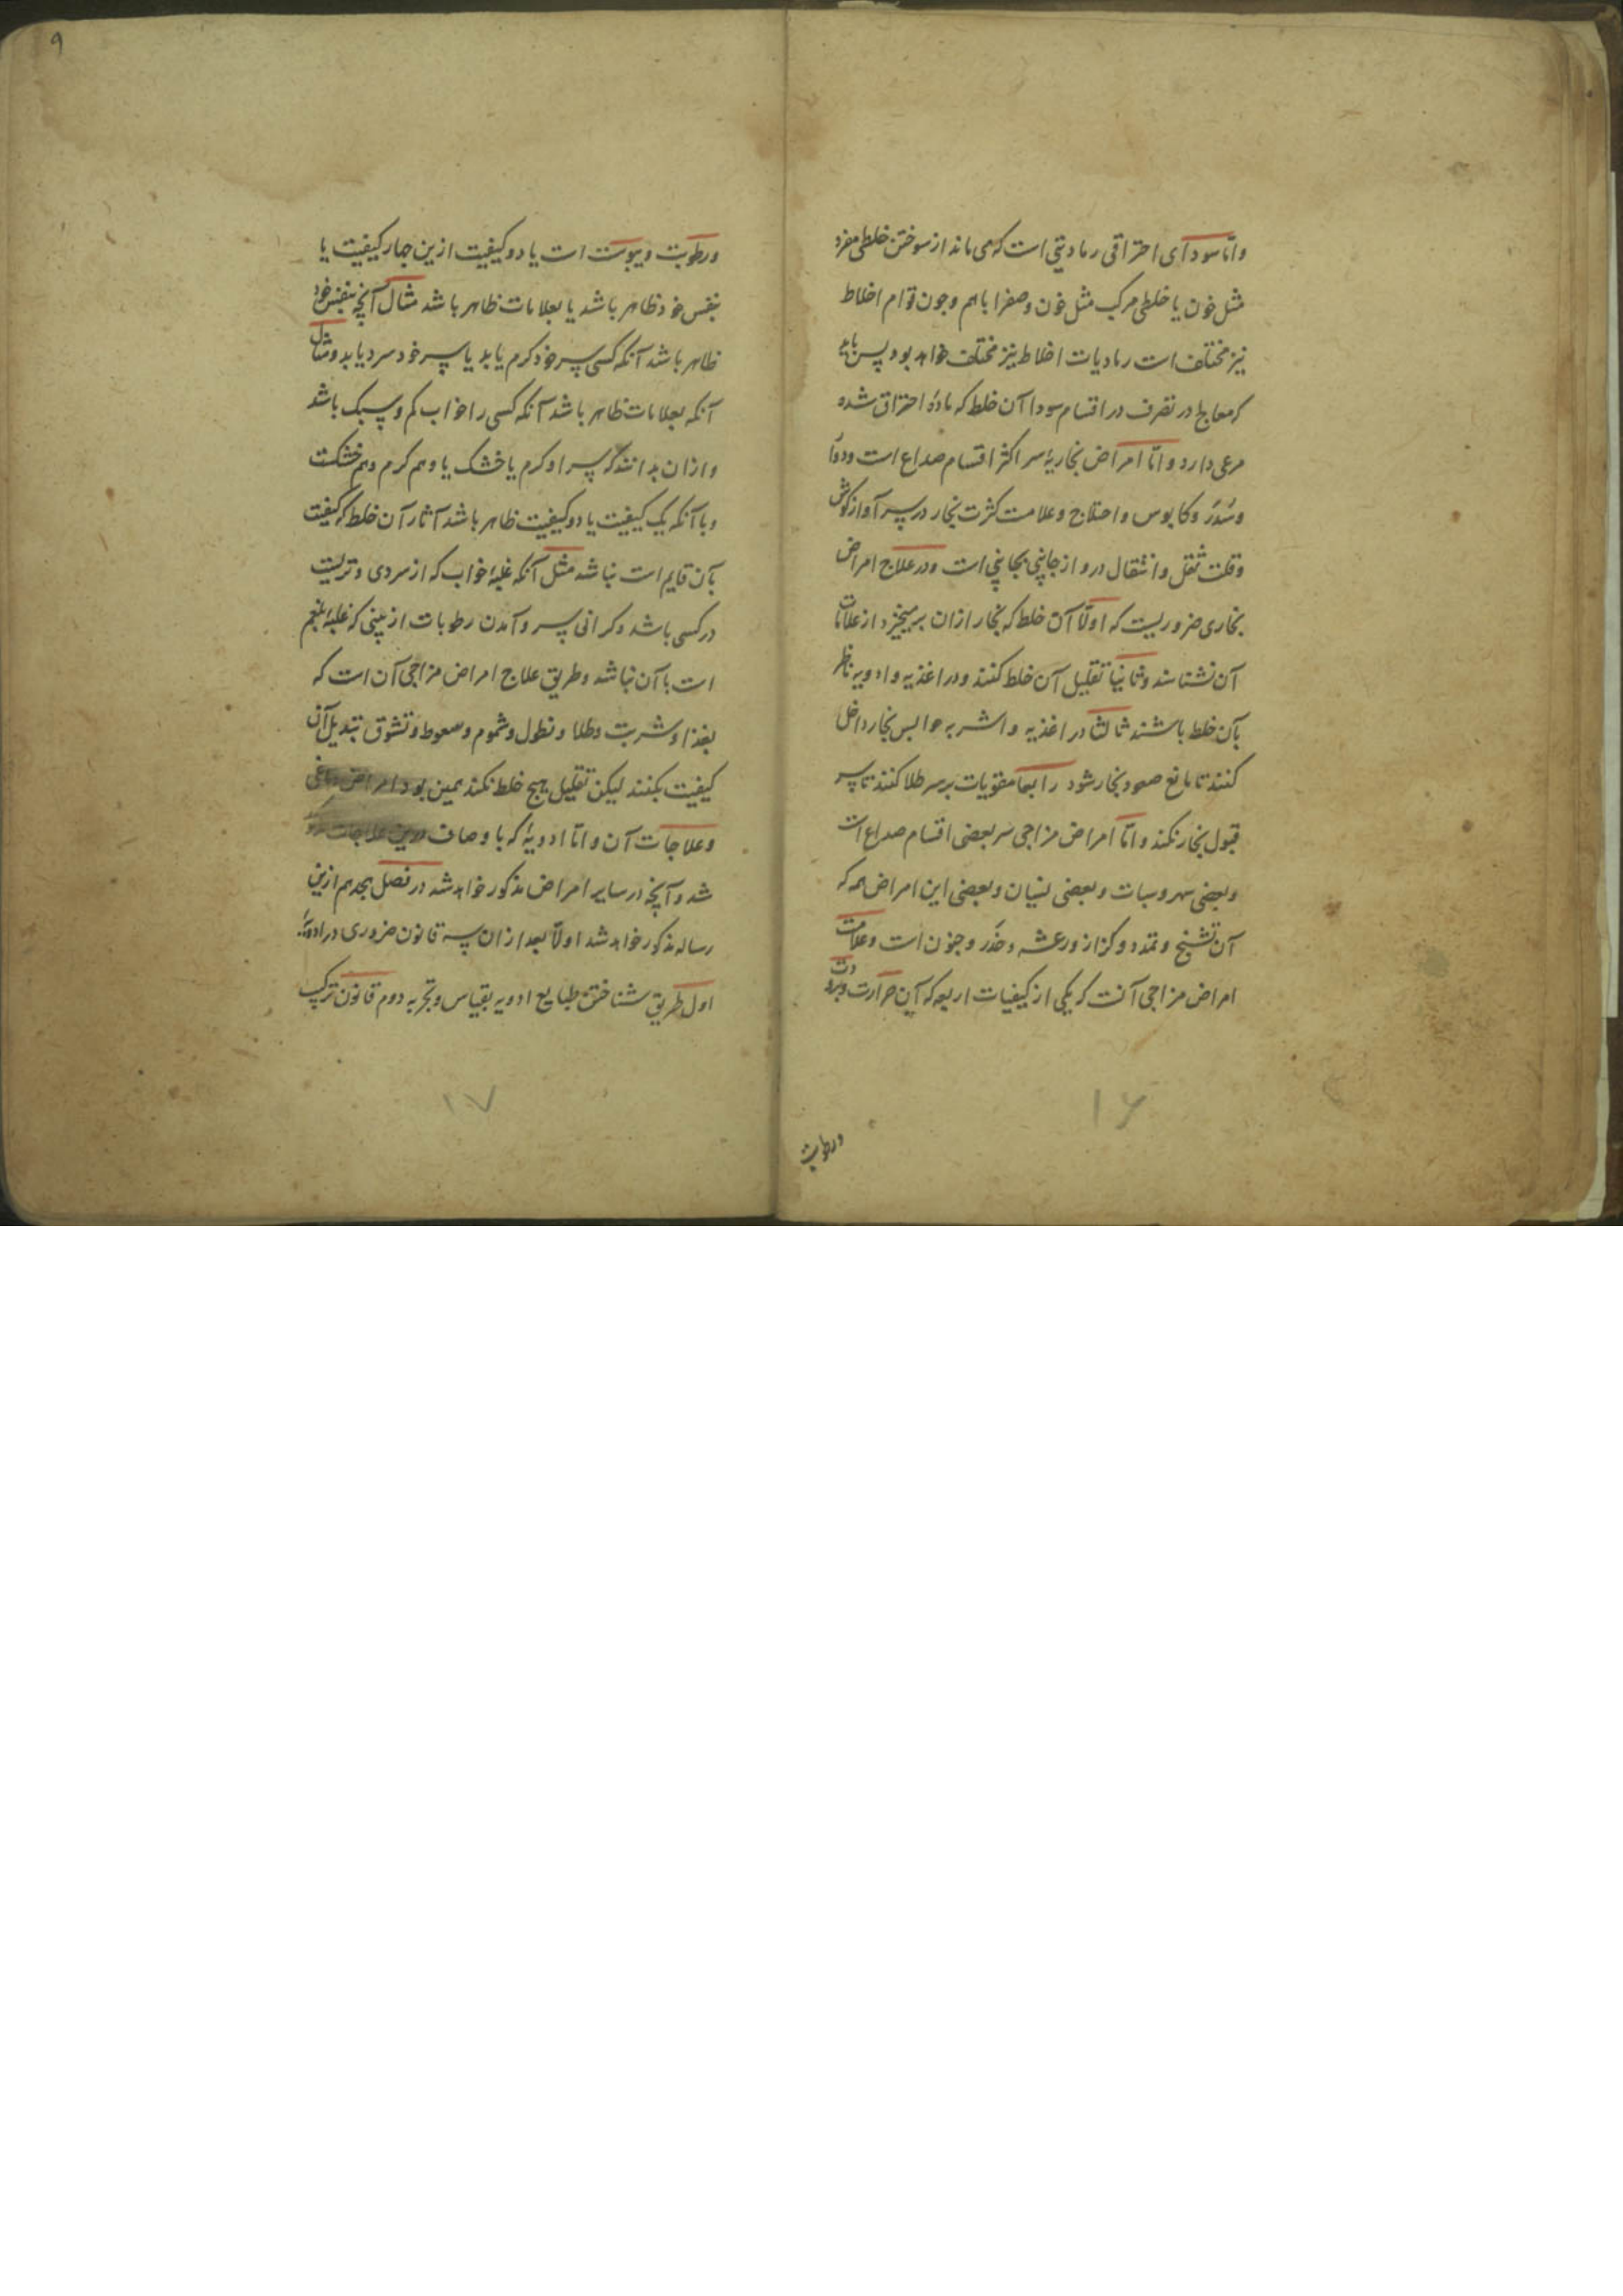 واما سودای احتراقی رمادیتی است که می ماند از سوختن خلطی مفرد
مثل خون یا خلطی مرکب مثل خون و صفرا باهم و چون قوام اخلاط
نیز مختلف است رمادیات اخلاط نیز مختلف خواهد بود پس باید
که معالج در تصرف در اقسام سودا آن خلط که مادهٔ احتراق شده
مرعی دارد و اما امراض بخاریهٔ سر اکثر اقسام صداع است و دوار
و سدر و کابوس و اختلاج و علامت کثرت بخار در سر آواز گوش
و قلت ثقل و انتقال درد از جانبی بجانبی است و در علاج امراض
بخاری ضروریست که اولا آن خلط که بخار ازان برمیخیزد از علامات
آن نشناسند و ثانیا تقلیل آن خلط کنند و در اغذیه و ادویه ناظر
بآن خلط باشند ثالثا در اغذیه و اشربه حوابس بخار داخل
کنند تا مانع صعود بخار شود رابعا مقویات بر سر طلا کنند تا سر
قبول بخار نکند و اما امراض مزاجی سر بعضی اقسام صداع است
و بعضی سهر و سبات و بعضی نسیان و بعضی این امراض همه که
آن تشنج و تمدد و کزاز و رعشه و خدر و جنون است و علامت
امراض مزاجی آنست که یکی از کیفیات اربعه که آن حرارت و برودت
ورطوبت
ورطوبت و یبوست است یا دو کیفیت ازین چهار کیفیت یا
بنفس خود ظاهر باشد یا بعلامات ظاهر باشد مثال آنچه بنفس خود
ظاهر باشد آنکه کسی سر خود گرم یابد یا سر خود سرد یابد و مثال
آنکه بعلامات ظاهر باشد آنکه کسی را خواب کم و سبک باشد
و ازان بدانند که سر او گرم یا خشک یا و هم گرم و هم خشکست
و با آنکه یک کیفیت یا دو کیفیت ظاهر باشد آثار آن خلط که کیفیت
بآن قایم است نباشد مثل آنکه غلبهٔ خواب که از سردی و تریست
در کسی باشد و گرانی سر و آمدن رطوبات از بینی که غلبهٔ بلغم
است با آن نباشد و طریق علاج امراض مزاجی آن است که
بغذا و شربت و طلا و نطول و شموم و سعوط و نشوق تبدیل آن
کیفیت بکنند لیکن تقلیل هیچ خلط نکنند همین بود امراض دماغی
و علاجات آن و اما ادویهٔ که باوصاف درین علاجات
شد و آنچه در سایر امراض مذکور خواهد شد در فصل هجدهم ازین
رساله مذکور خواهد شد اولا بعد ازان سه قانون ضروری در ادویه
اول طریق شناختن طبایع ادویه بقیاس و تجربه دوم قانون ترکیب
۹
۱۶
۱۷